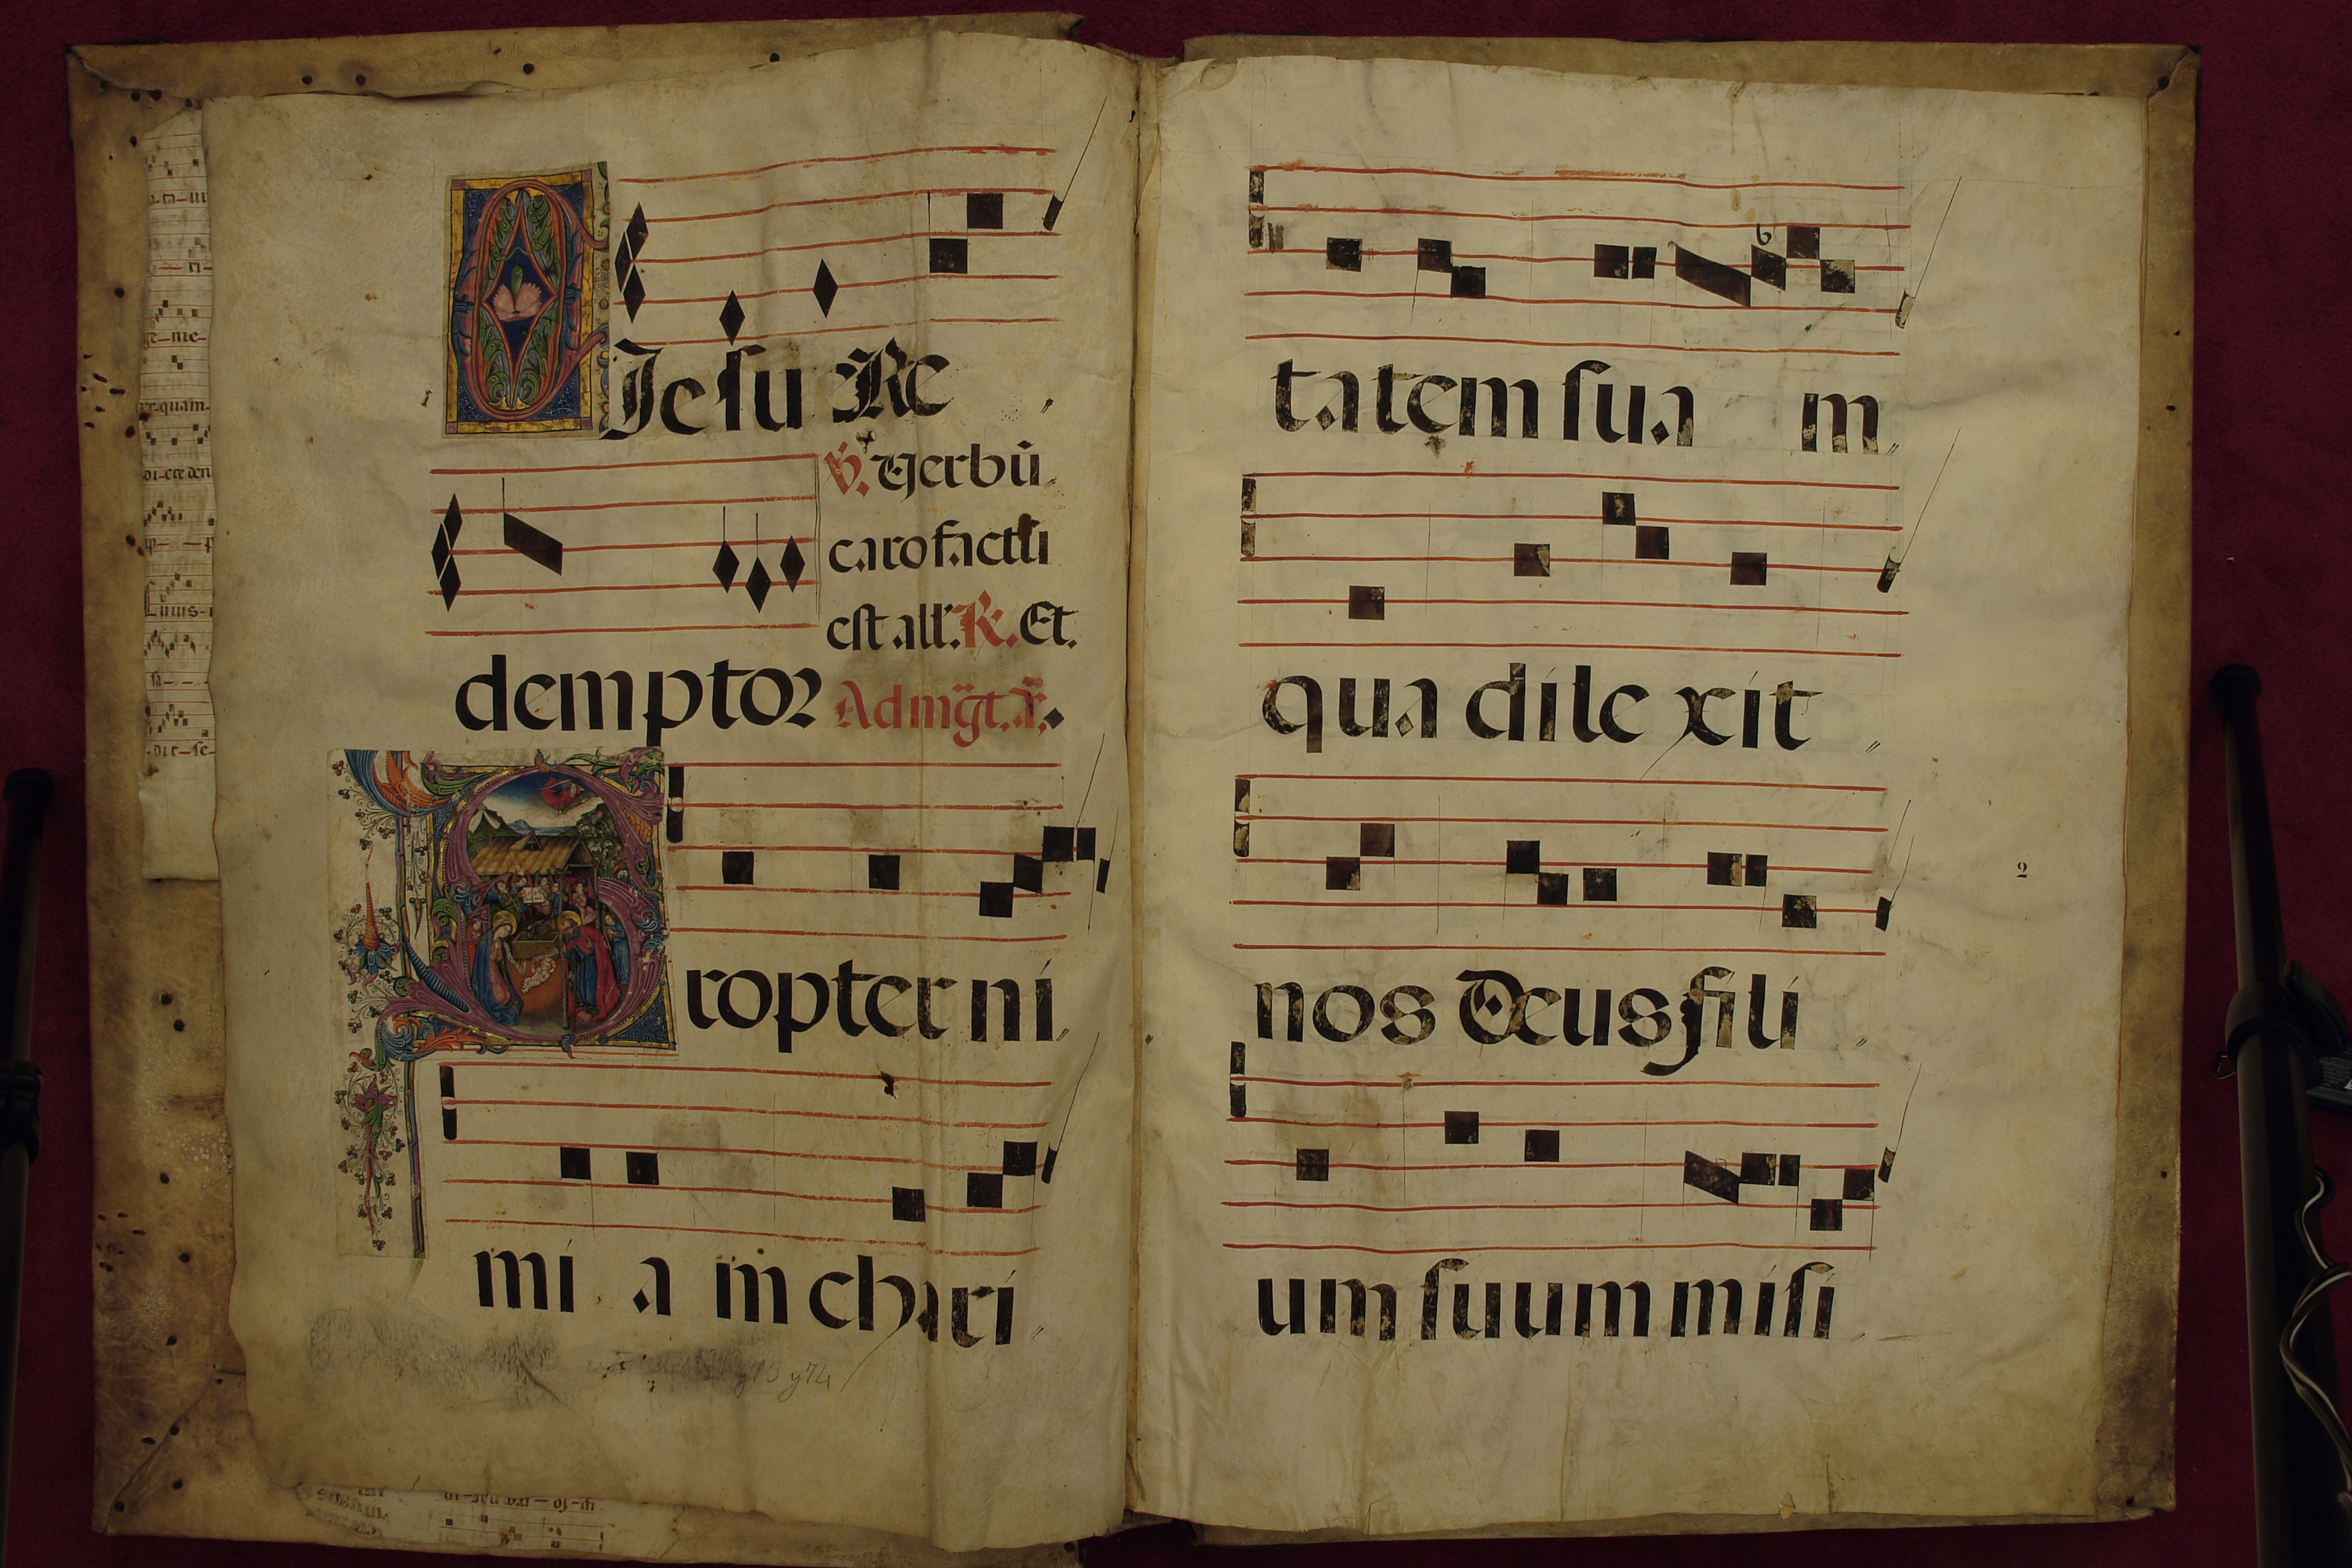 O Jesu Re
℣. Verbū
caro factū
est all'. ℟. Et.
demptor Ad mḡt. añ.
Propter ni
mi a m chari
y73 y74
tatem sua m
qua dile xit
2
nos Deus fili
um suum misi